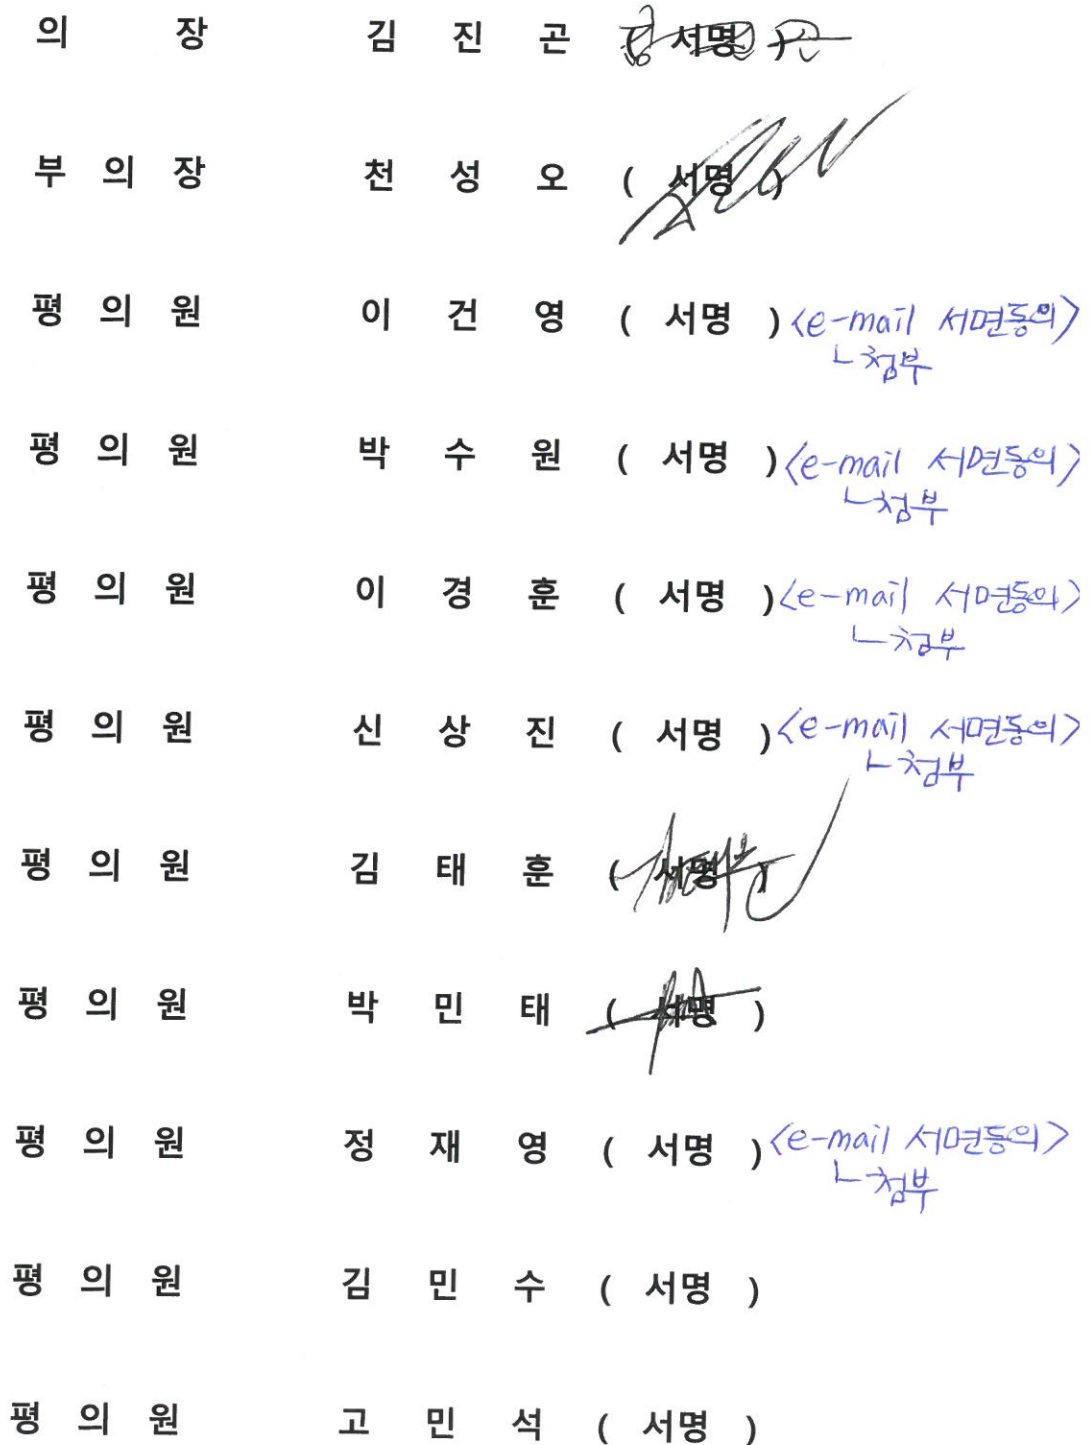 의 장 김 진 곤 ( 서명 )
부 의 장 천 성 오 ( 서명 )
평 의 원 이 건 영 ( 서명 ) <e-mail 서면동의>
ㄴ첨부
평 의 원 박 수 원 ( 서명 ) <e-mail 서면동의>
ㄴ첨부
평 의 원 이 경 훈 ( 서명 ) <e-mail 서면동의>
ㄴ첨부
평 의 원 신 상 진 ( 서명 ) <e-mail 서면동의>
ㄴ첨부
평 의 원 김 태 훈 ( 서명 )
평 의 원 박 민 태 ( 서명 )
평 의 원 정 재 영 ( 서명 ) <e-mail 서면동의>
ㄴ첨부
평 의 원 김 민 수 ( 서명 )
평 의 원 고 민 석 ( 서명 )